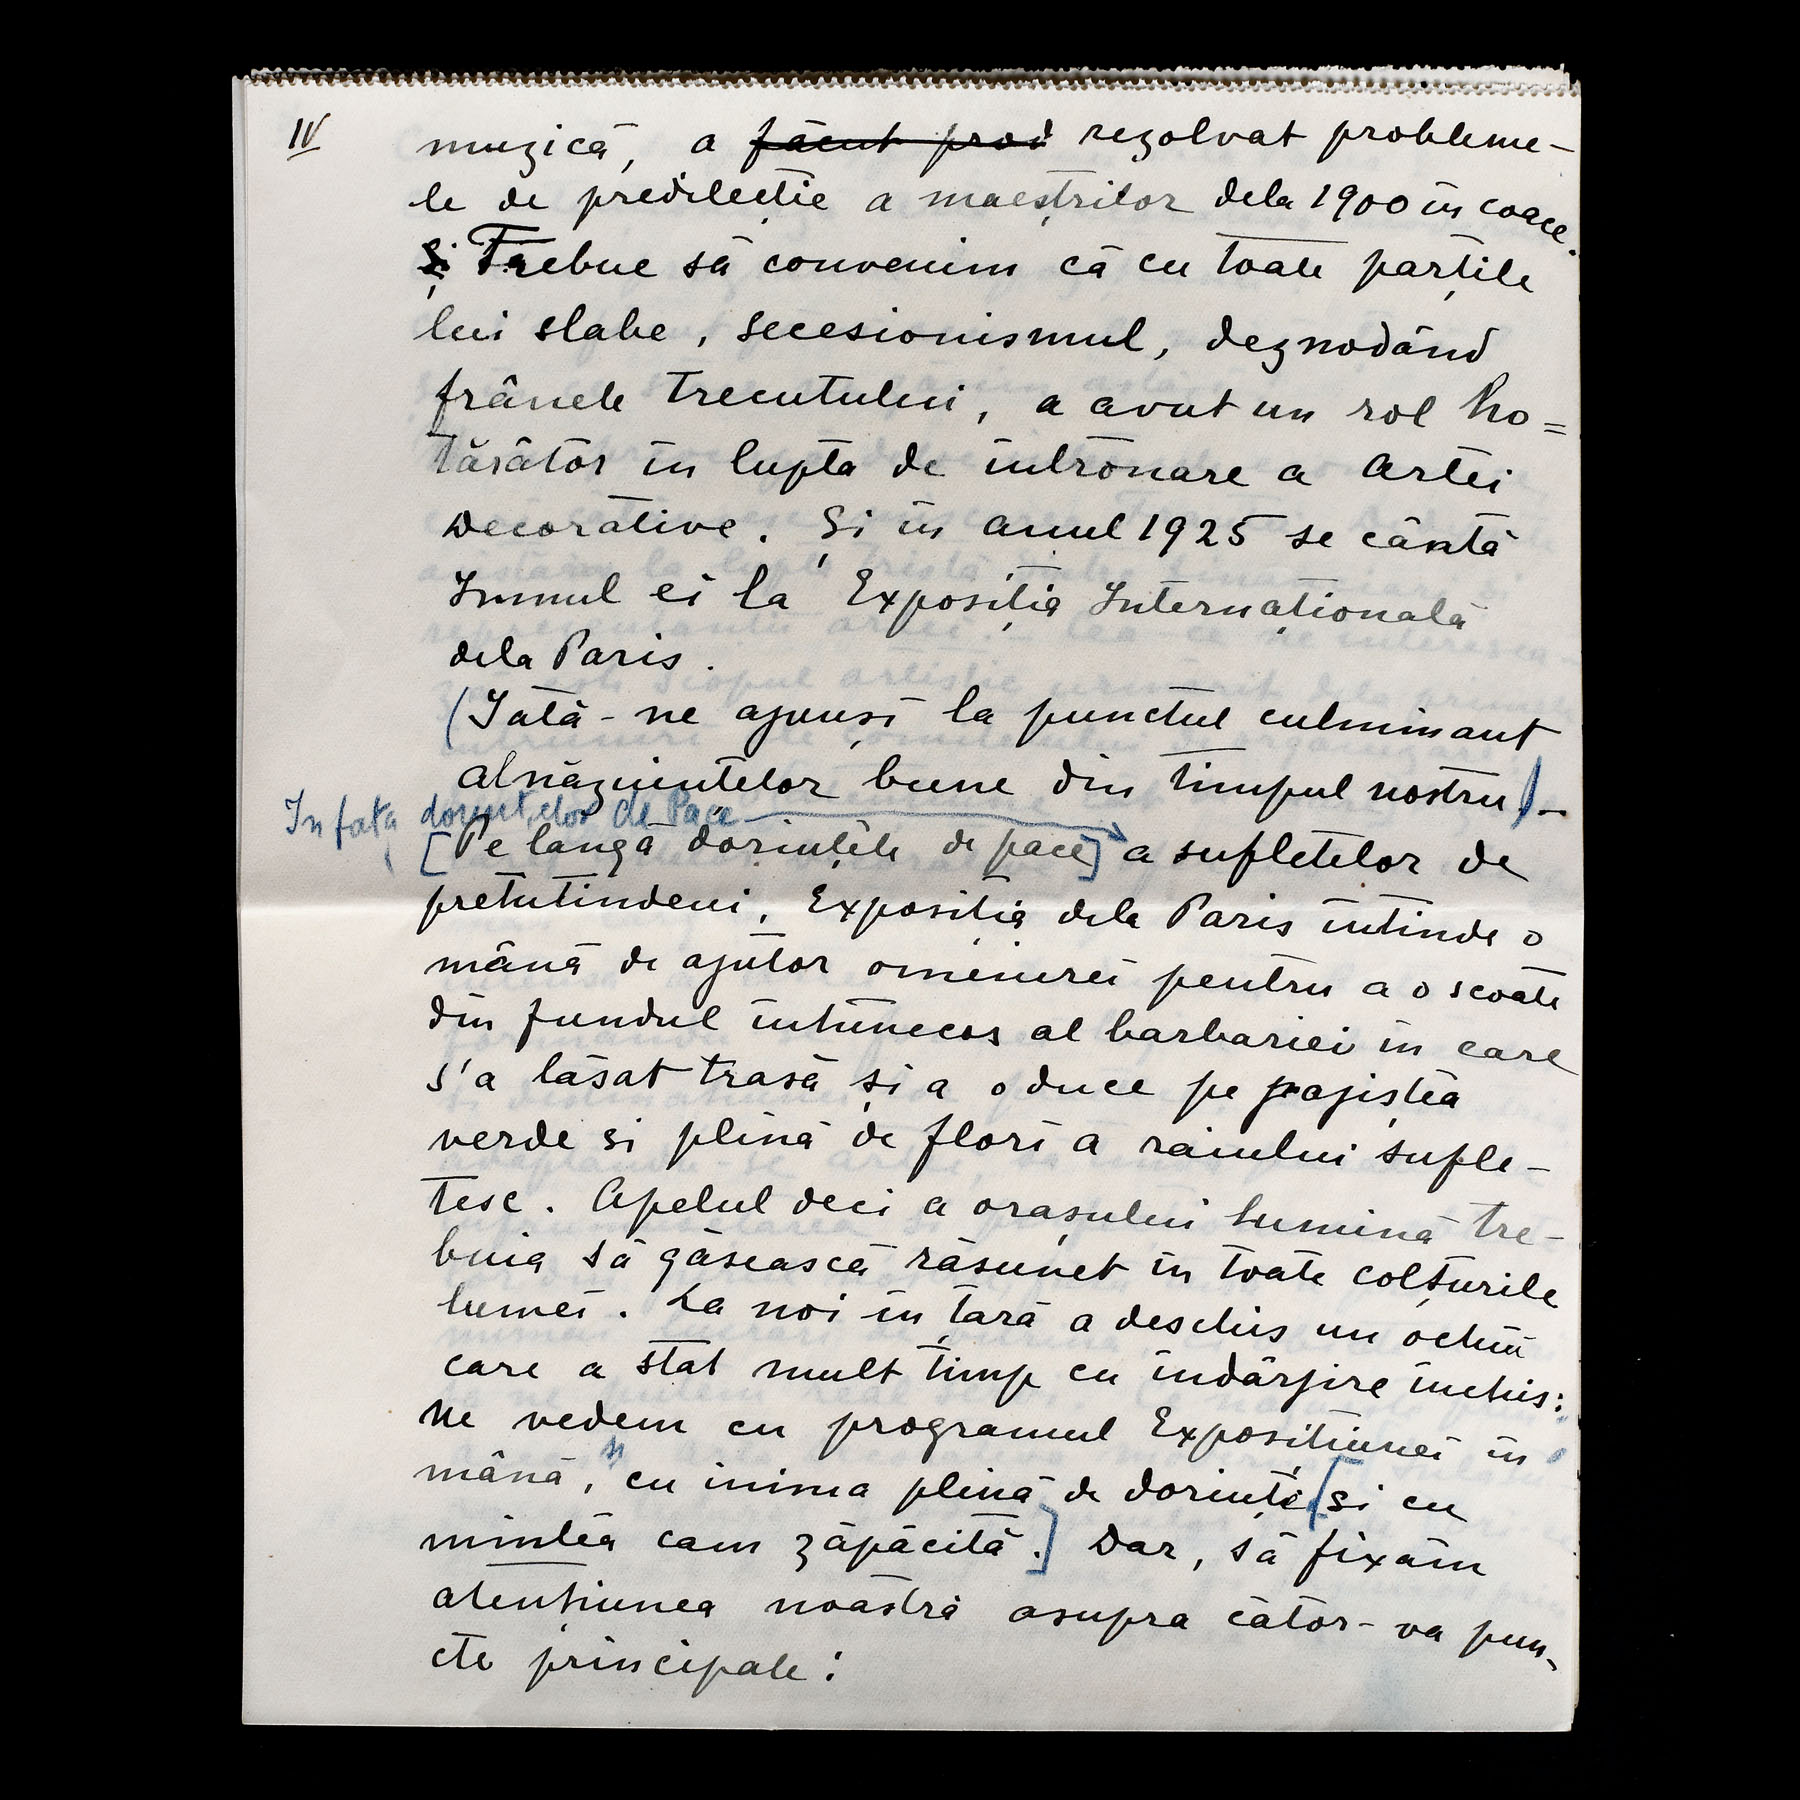 IV
muzică, a făcut prod rezolvat probleme-
le de predilecție a maeștrilor dela 1900 în coace.
Și Trebue să convenim că cu toate părțile
lui slabe, secesionismul, deznodând
frânele trecutului, a avut un rol ho=
tărâtor în lupta de întronare a artei
decorative. Și în anul 1925 se cântă
Imnul ei la Expoziția Internațională
dela Paris.
(Iată-ne ajunși la punctul culminant
al năzuințelor bune din timpul nostru)-
In fața dorințelor de Pace
[Pe langă dorințele de pace] a sufletelor de
pretutindeni, Expoziția dela Paris întinde o
mână de ajutor omenirei pentru a o scoate
din fundul întunecos al barbariei în care
s'a lăsat trasă și a o duce pe pajiștea
verde si plină de flori a raiului sufle-
tesc. Apelul deci a orașului lumină tre-
buia să găsească răsunet în toate colțurile
lumei. La noi în țară a deschis un ochiu
care a stat mult timp cu îndârjire închis:
Ne vedem cu programul Expozițiunei în
mână, și cu inima plină de dorințe [și cu
mintea cam zăpăcită.] Dar, să fixăm
atențiunea noastră asupra câtor-va pun-
cte principale: